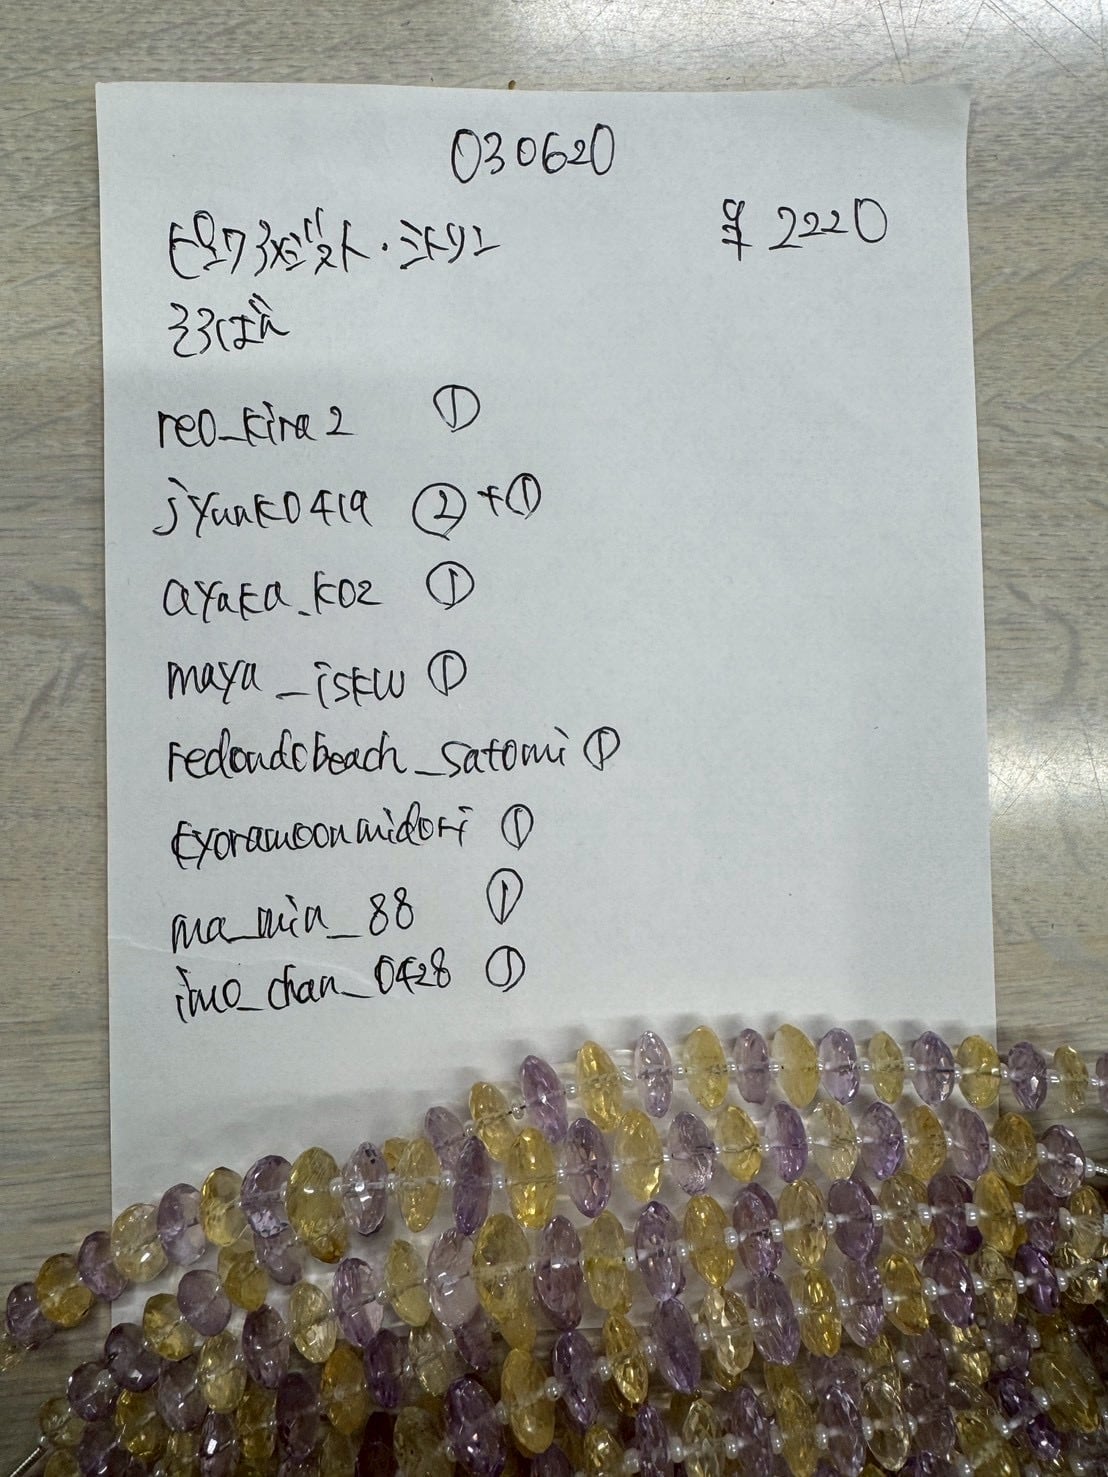 030620
¥ 2220
reo_kira2 ①
jyunk0419 ②+①
ayaka.k02 ①
maya_iskw ①
redondobeach_satomi ①
kyoramoonmidori ①
ma_min_88 ①
imo_chan_0428 ①